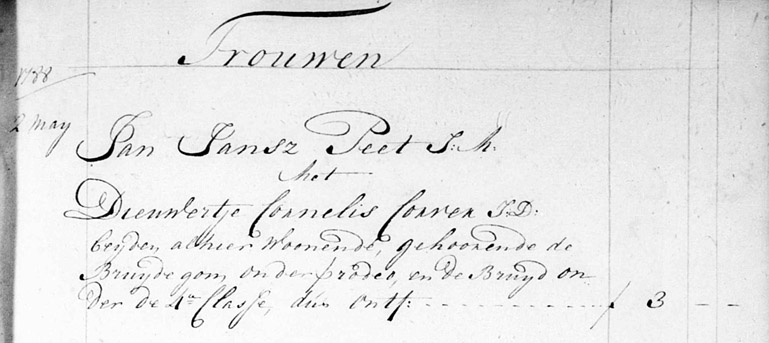 Trouwen
1788
2 May
Jan Jansz Peet J: M:
Met
Dieuwertje Cornelis Conren J: D:
beyden alhier Woonende, gehoorende de
Bruydegom, onder prodeo, en de Bruyd on
der de 4e Classe, dus ontf: - - - - - - - - - - f 3 - -